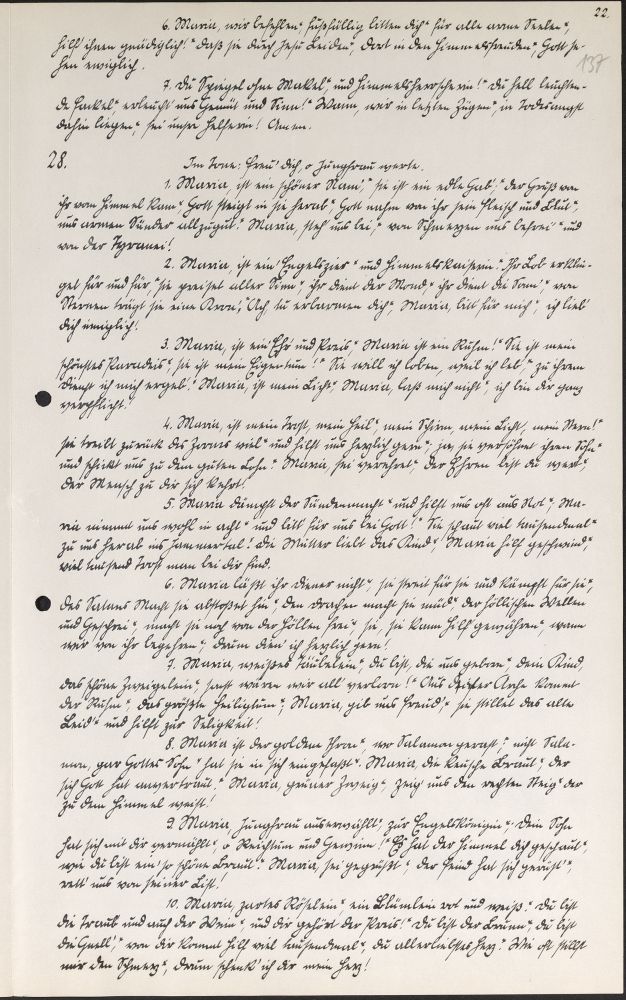 22.
137
6. Maria, wir befehlen" fußfällig bitten dich" für alle arme Seelen",
hilf ihnen gnädiglich!" daß sie durch Jesu Leiden", dort in den Himmelsfreuden", Gott se-
hen ewiglich.
7. Du Spiegel ohne Makel", und Himmelsherrscherin!" du hell leuchten-
de Fackel" erleucht' uns Gemüt und Sinn!" Wann, wir in letzten Zügen", in Todesangst
dahin liegen", sei unsre Helferin! Amen.
28. Im Tone: Freu' dich, o Jungfrau werte.
1. Maria, ist ein schöner Nam'," sie ist ein edle Gab'," der Gruß von
ihr vom Himmel kam," Gott steigt in sie herab" Gott nahm von ihr sein Fleisch und Blut",
uns armen Sünder allzugut." Maria, steh' uns bei," von Schmerzen uns befrei'" und
von der Tyranei!
2. Maria, ist ein Engelszier" und Himmelskaiserin." Ihr Lob erklin-
get für und für," sie preiset aller Sinn", ihr dient der Mond" ihr dient die Sonn'," von
Sternen trägt sie eine Kron'," Ach tu erbarmen dich", Maria, bitt für mich", ich lieb'
dich ewiglich!
3. Maria, ist ein Ehr' und Preis," Maria ist ein Ruhm!" Sie ist mein
schönstes Paradeis", sie ist mein Eigentum!" Sie will ich loben, weil ich leb'," zu ihrem
Dienst ich mich ergeb'." Maria, ist mein Licht," Maria, laß mich nicht", ich bin dir ganz
verpflicht!
4. Maria, ist mein Trost, mein Heil," mein Schirm, mein Licht, mein Stern!"
sie treibt zurück des Zornes viel" und hilft uns herzlich gern", ja, sie versöhnet ihren Sohn"
und schickt uns zu dem guten Lohn." Maria, sei verehret," der Ehren bist du wert",
der Mensch zu dir sich kehrt!
5. Maria dämpft der Sündenmacht" und hilft uns oft aus Not", Ma-
ria nimmt uns wohl in acht" und bitt für uns bei Gott!" Sie schaut viel tausendmal"
zu uns herab ins Jammertal! Die Mutter liebt das Kind," Maria hilf geschwind,"
viel tausend Trost man bei dir find.
6. Maria läßt ihr Diener nicht", sie streit für sie und kämpft für sie",
des Satans Macht sie abstoßet hin," den Drachen macht sie müd," der höllischen Wellen
und Geschrei", macht sie noch von der Höllen frei", sie, sie kann Hilf gewähren", wann
wir von ihr begehren", drum dien ich herzlich gern!
7. Maria, weißes Täubelein," du bist, die uns geborn" dein Kind,
das schöne Zweigelein", sonst wären wir all' verlorn!" Aus dieser Arche kommt
der Ruhm", das größte Heiligtum", Maria, gib uns Freud'," sie stillet das alte
Leid'" und hilft zur Seligkeit!
8. Maria ist der golden Thron", wo Salamon gerast," nicht Sala-
mon, gar Gottes Sohn" hat sie in sich eingefaßt". Maria, die keusche Braut," der
sich Gott hat anvertraut." Maria, grüner Zweig," zeig uns den rechten Steig" der
zu dem Himmel weist!
9. Maria, Jungfrau auserwählt" zur Engelskönigin", dein Sohn
hat sich mit dir vermählt", o Reichtum und Gewinn!" Es hat der Himmel dich geschaut,"
wie du bist ein' so schöne Braut." Maria, sei gegrüßt", der Feind hat sich gerüst'",
rett' uns von seiner List!
10. Maria, zartes Röselein" ein Blümlein rot und weiß." Du bist
die Traub' und auch der Wein", und dir gehört der Preis!" Du bist der Brunn," du bist
die Quell'," von dir kommt Hilf viel tausendmal", du allerliebstes Herz." Wie oft stillst
mir den Schmerz", drum schenk' ich dir mein Herz!